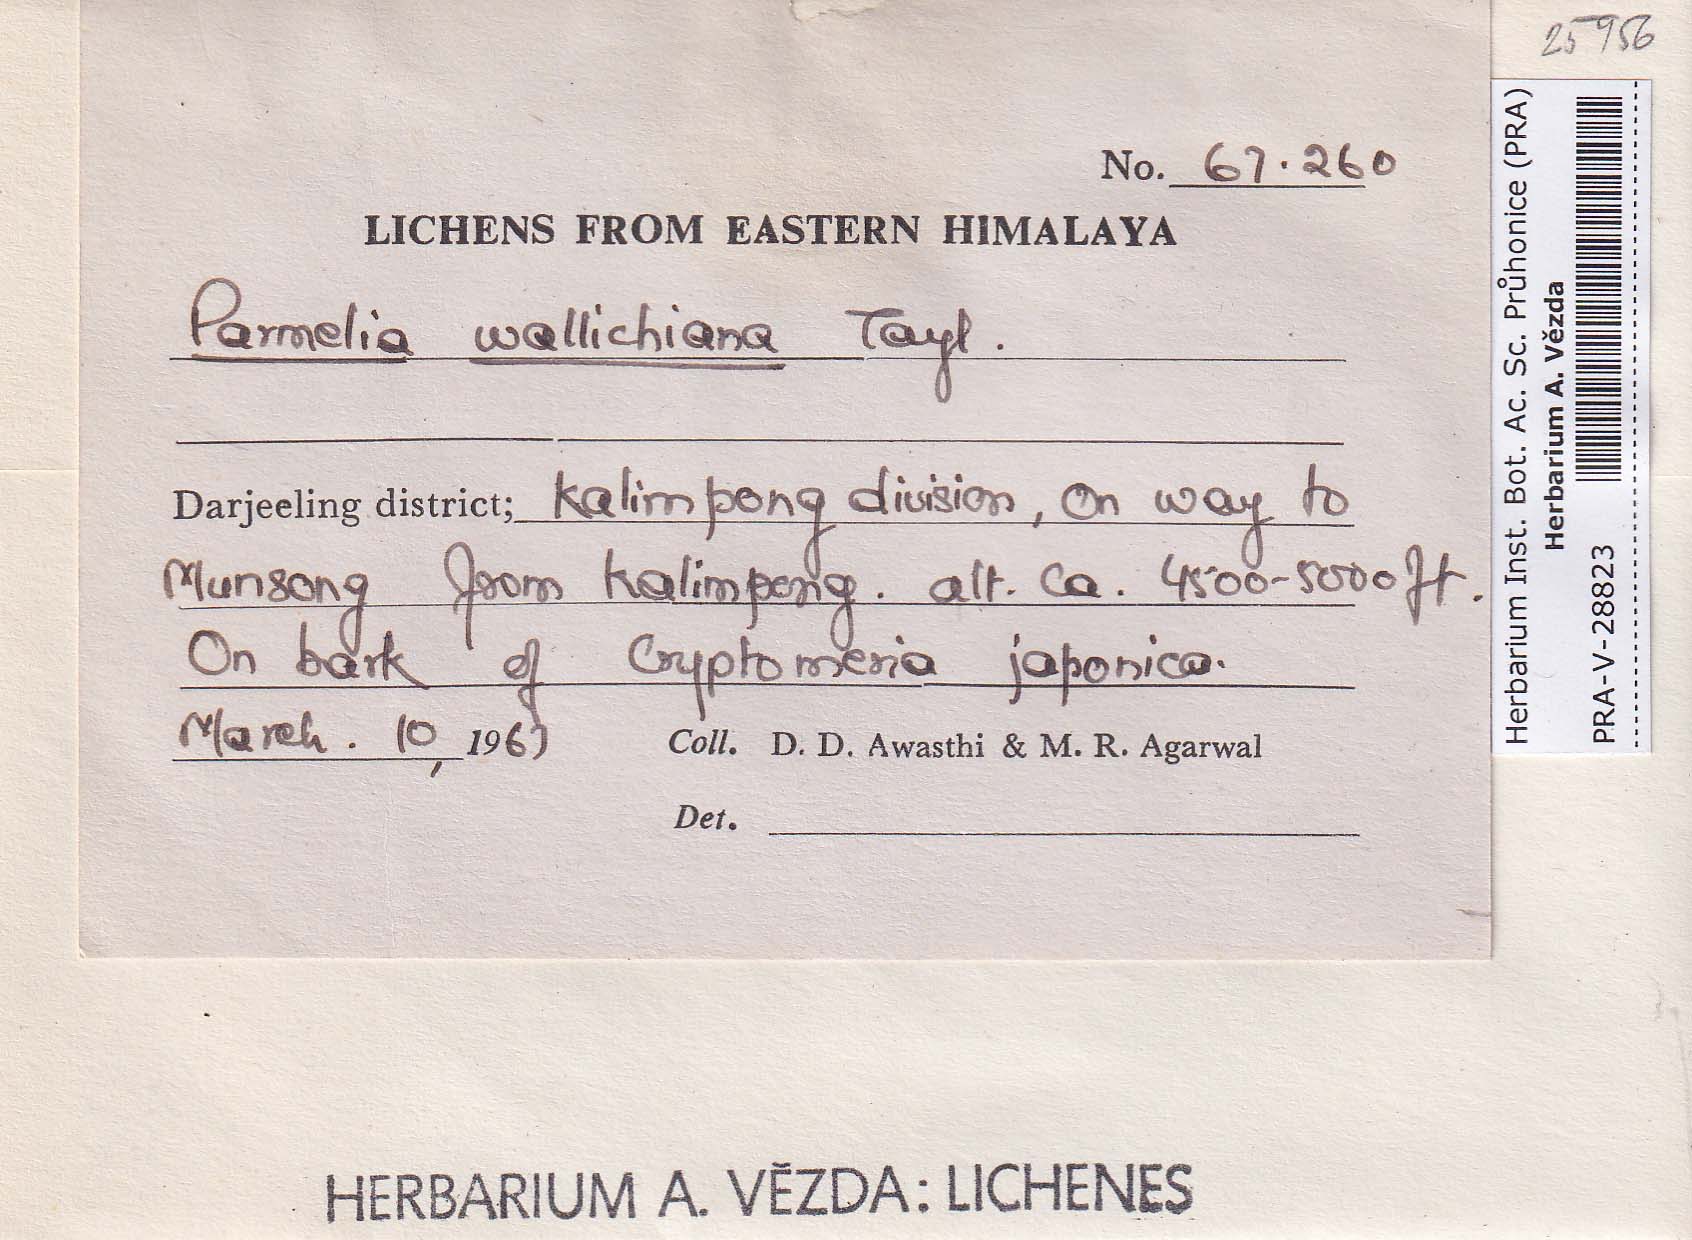 25956
No. 67.260
LICHENS FROM EASTERN HIMALAYA
Parmelia wallichiana Tayl.
Darjeeling district; Kalimpong division, On way to
Munsong from Kalimpong. alt. Ca. 4500-5000 ft.
On bark of Cryptomeria japonica.
March. 10, 1967 Coll. D. D. Awasthi & M. R. Agarwal
Det.
Herbarium Inst. Bot. Ac. Sc. Průhonice (PRA)
Herbarium A. Vězda
PRA-V-28823
HERBARIUM A. VĚZDA: LICHENES